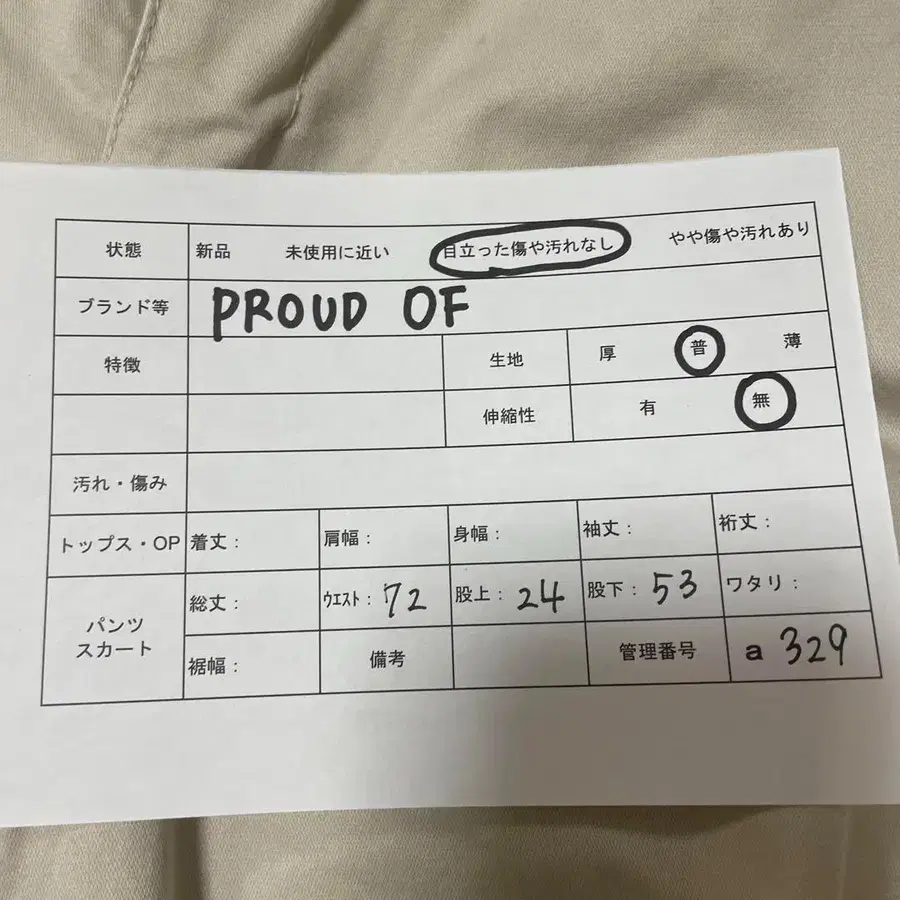 状態 新品 未使用に近い 目立った傷や汚れなし やや傷や汚れあり
ブランド等 PROUD OF
特徴 生地 厚 普 薄
伸縮性 有 無
汚れ・傷み
トップス・OP 着丈: 肩幅: 身幅: 袖丈: 裄丈:
パンツ スカート 総丈: ウエスト: 72 股上: 24 股下: 53 ワタリ:
裾幅: 備考 管理番号 a 329